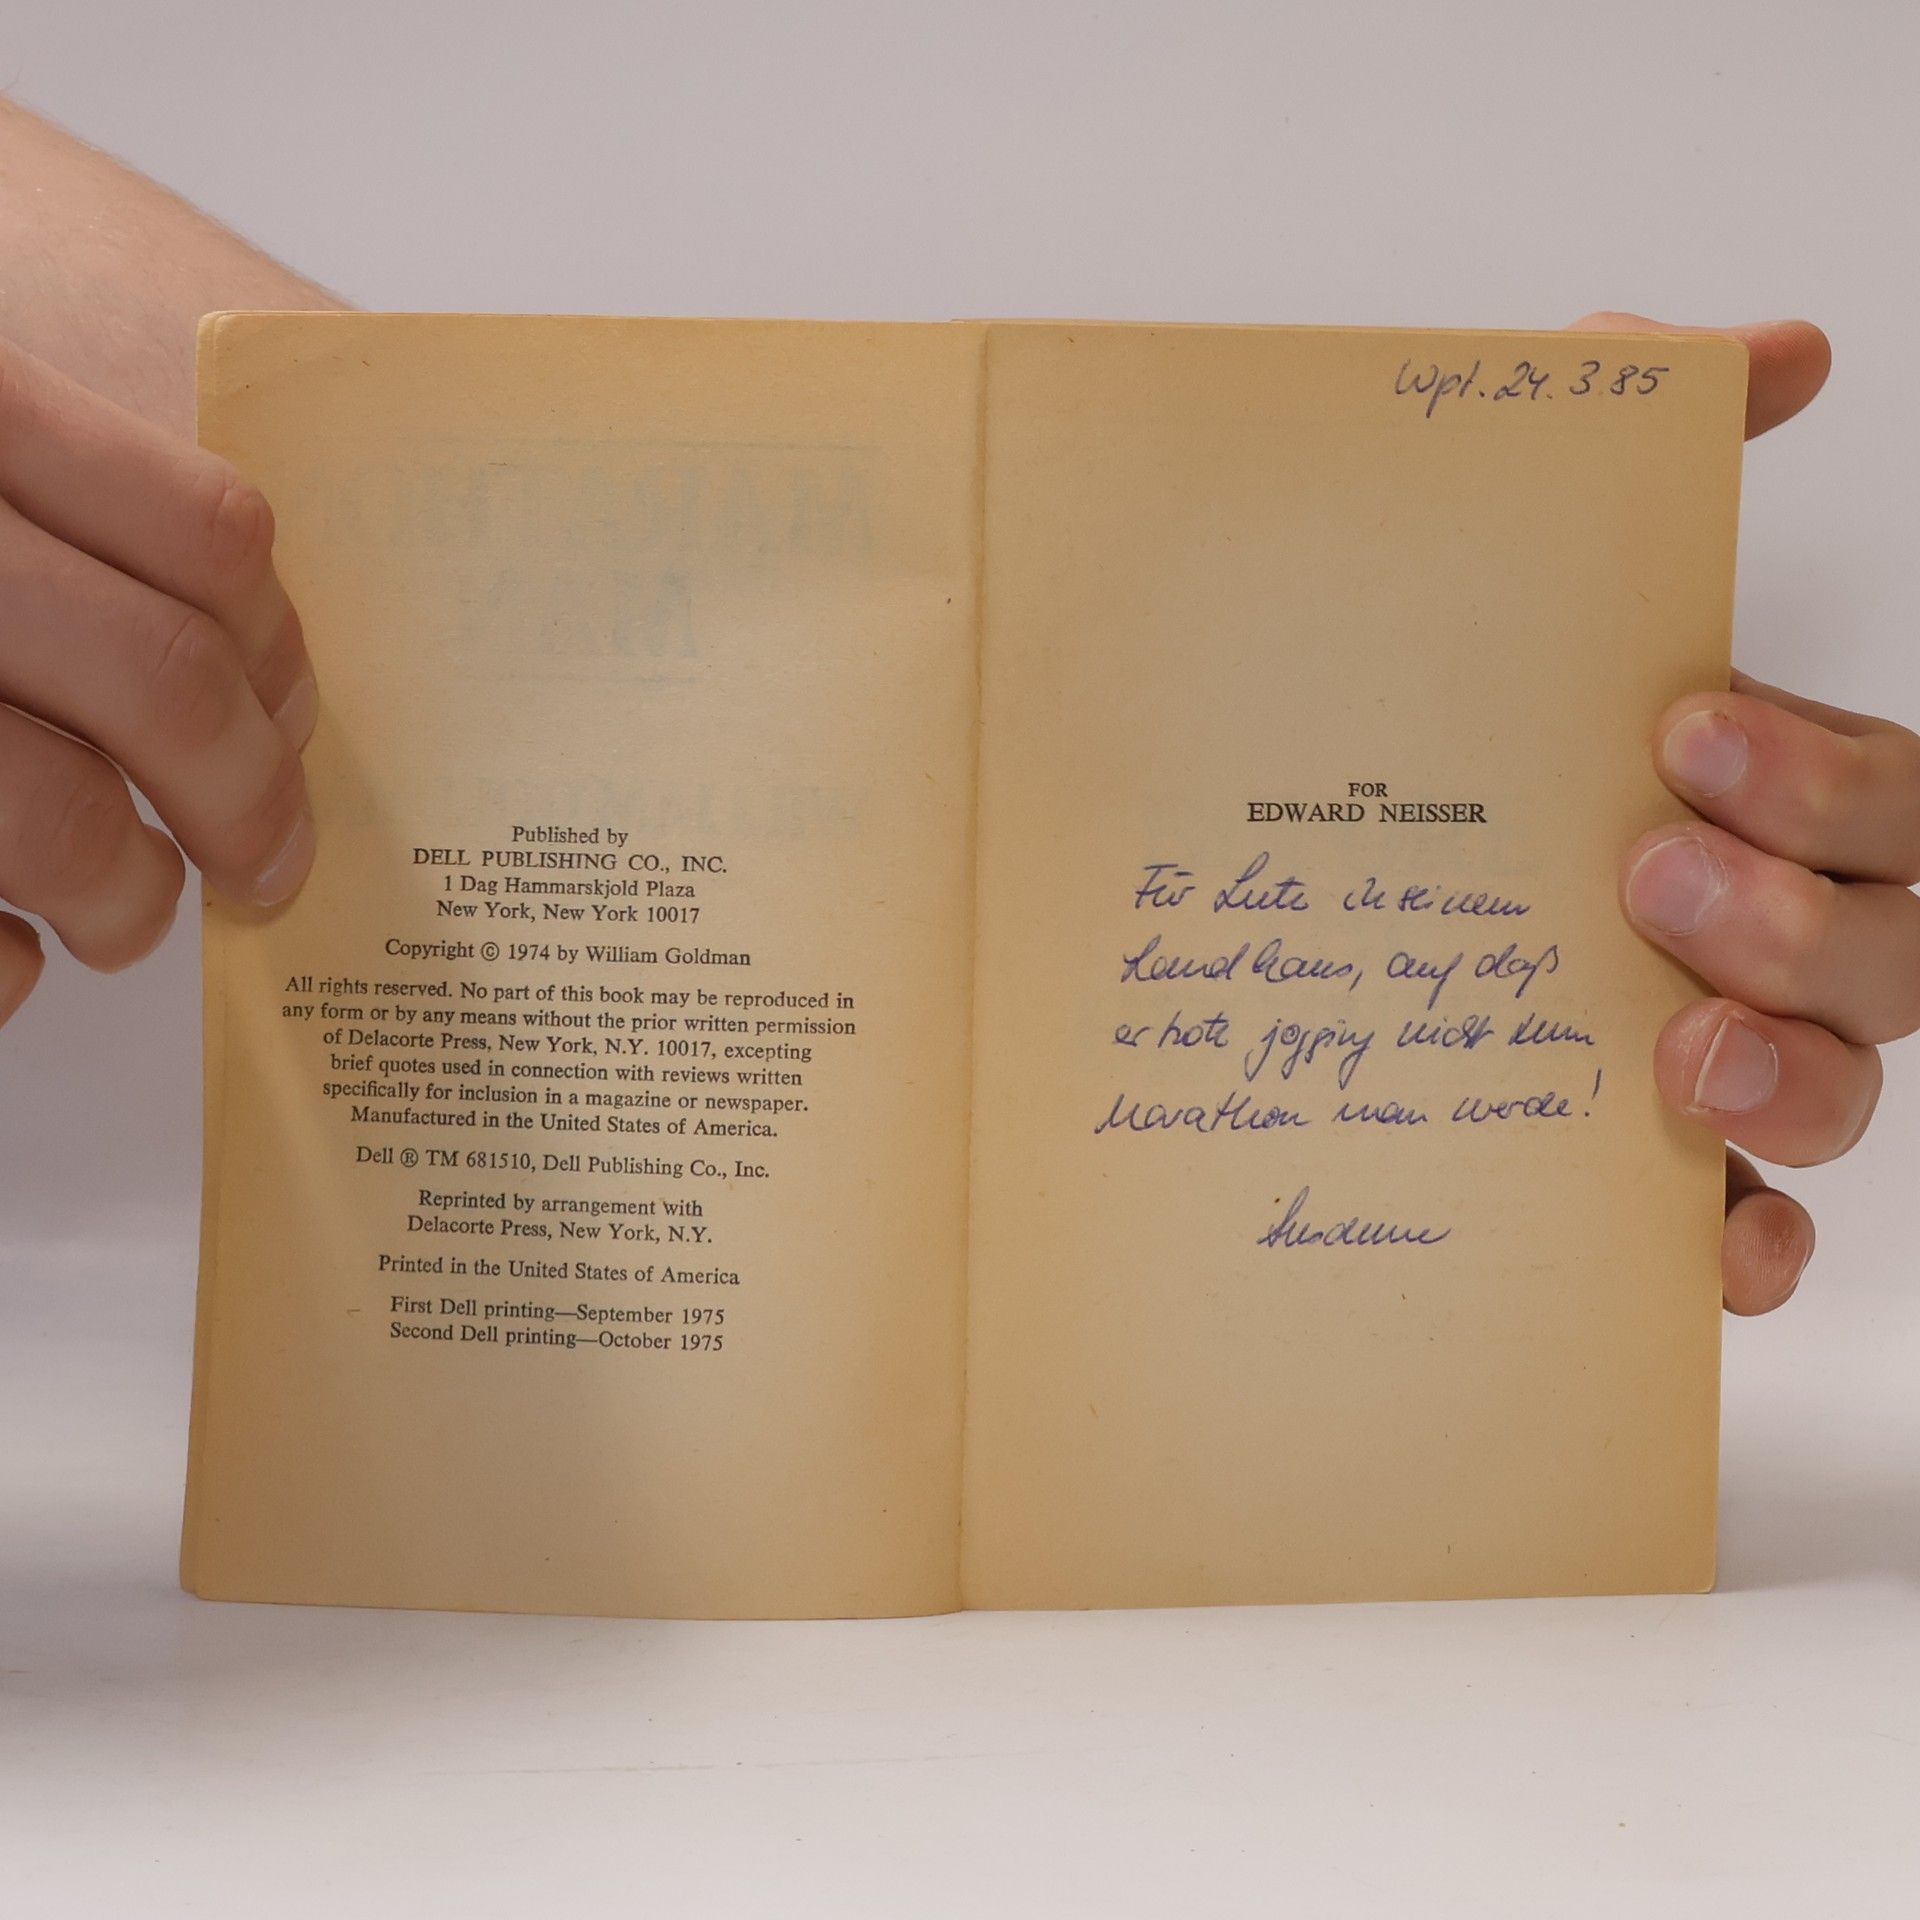 Published by
DELL PUBLISHING CO., INC.
1 Dag Hammarskjold Plaza
New York, New York 10017
Copyright © 1974 by William Goldman
All rights reserved. No part of this book may be reproduced in
any form or by any means without the prior written permission
of Delacorte Press, New York, N.Y. 10017, excepting
brief quotes used in connection with reviews written
specifically for inclusion in a magazine or newspaper.
Manufactured in the United States of America.
Dell ® TM 681510, Dell Publishing Co., Inc.
Reprinted by arrangement with
Delacorte Press, New York, N.Y.
Printed in the United States of America
First Dell printing—September 1975
Second Dell printing—October 1975
Wpt. 24. 3.85
FOR
EDWARD NEISSER
Für in seinem
Landhaus, auf daß
er jogging nicht zum
Marathon man werde!
Susanne